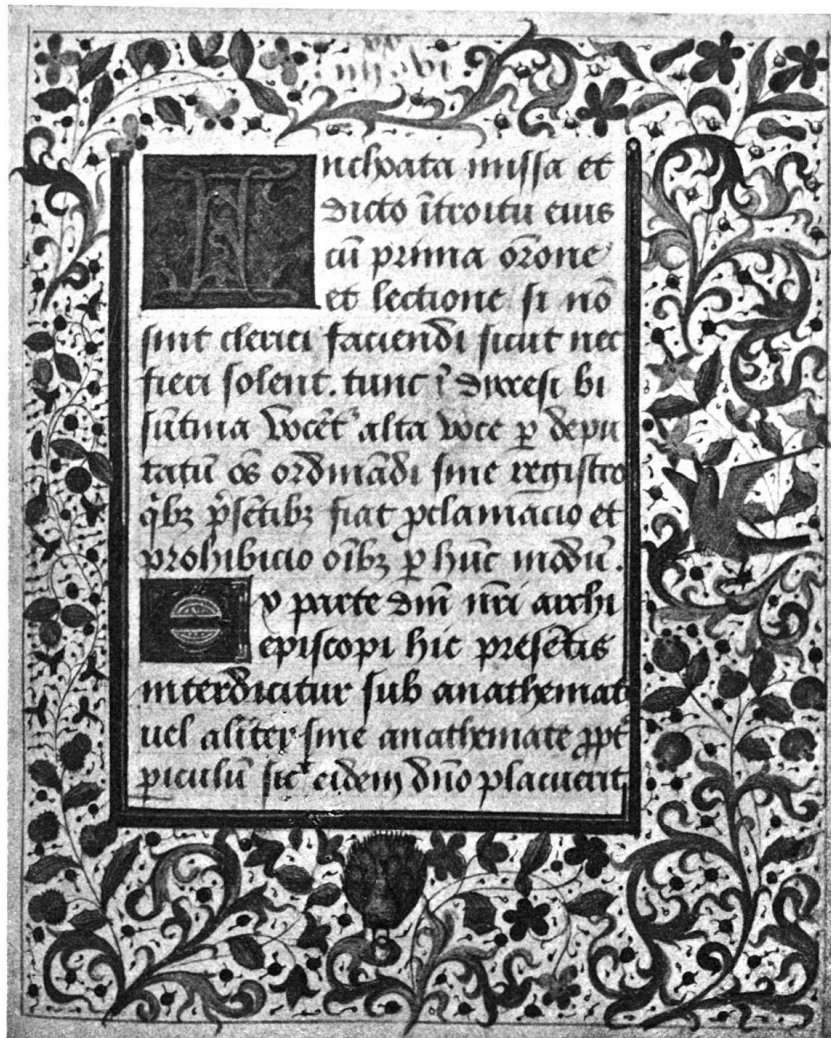 Inchoata missa et
dicto ītroitu eius
cū prima or̄one
et lectione si nō
sint clerici faciendi sicut nec
fieri solent. tunc ī diocesi bi
sūtina vocēt᷑ alta voce ꝑ depu
tatū oēs ordināndi sine registro
qͥbꝫ p̄sētibꝫ fiat ꝓclamacio et
prohibicio oīnibꝫ ꝑ hūc modū.
Ex parte dn̄i nr̄i archi
episcopi hic presētis
interdicitur sub anathemat
uel alīter sine anathemate ꝓpt᷑
ꝑiculū sic᷑ eidem dn̄o placuerit